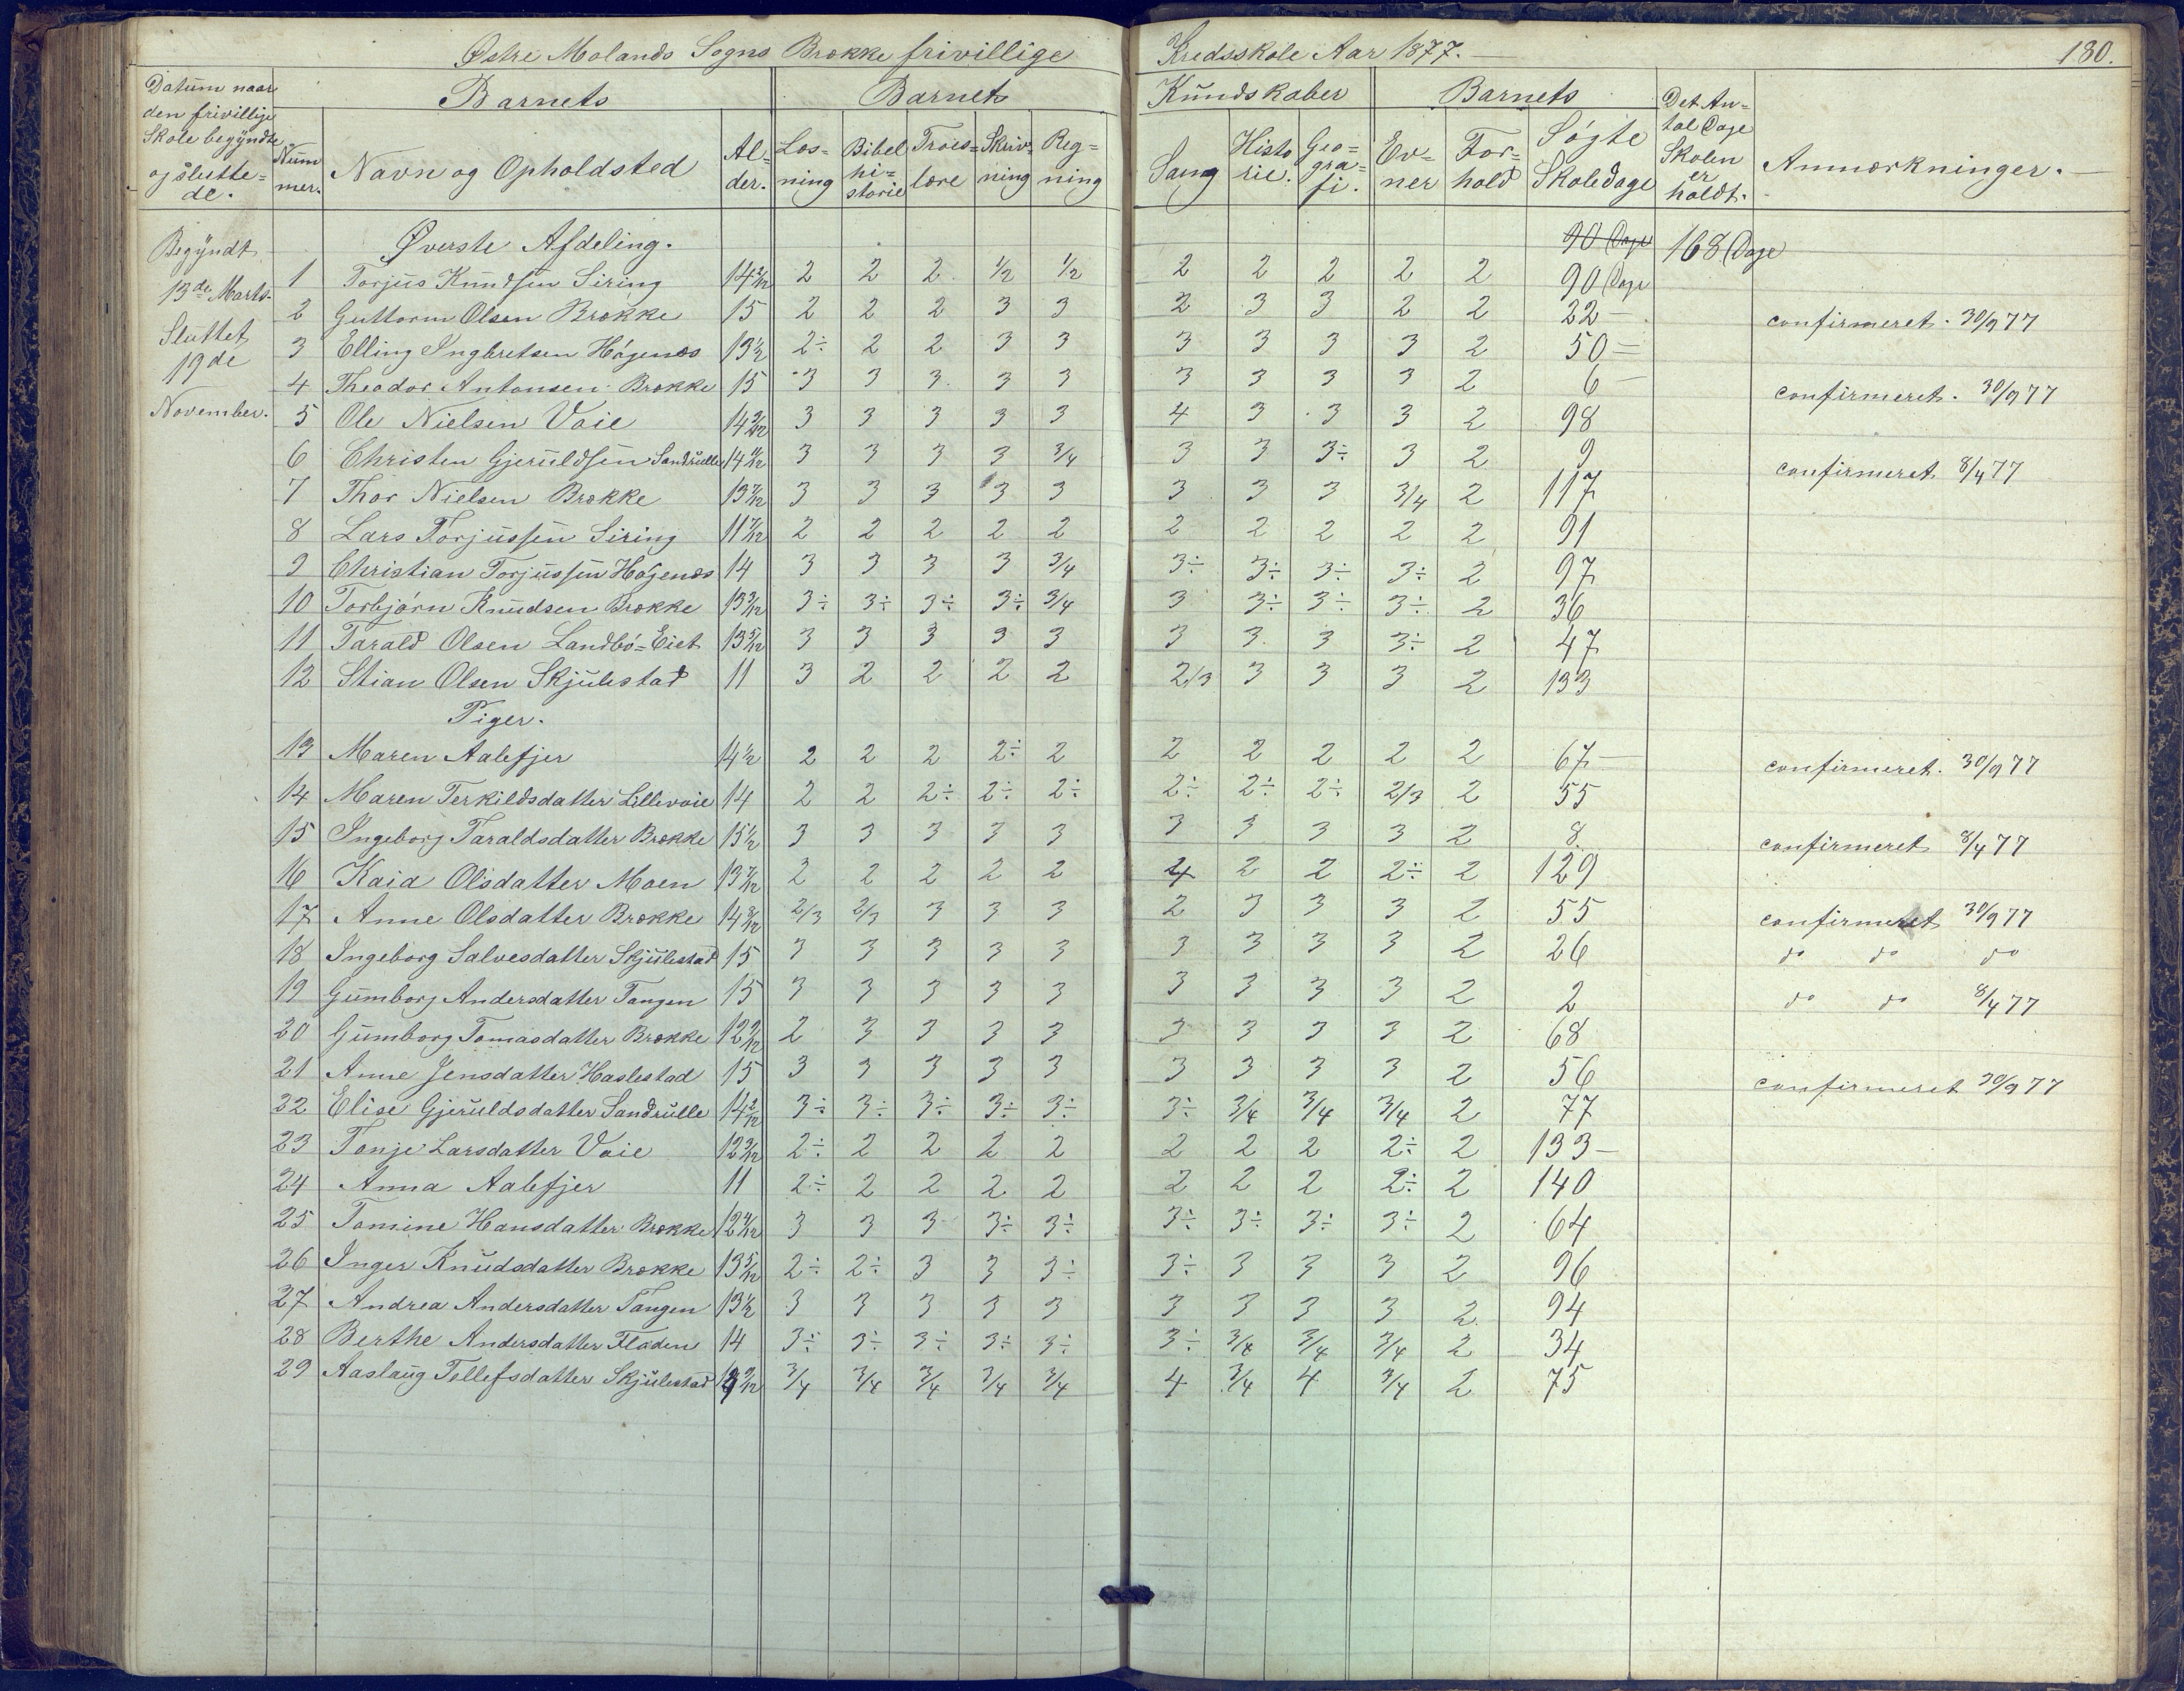 Østre Molands Sogns Brække frivillige Kredsskole Aar 1877. 180.
Datum naar den frivillige Skole begyndte og slutte=de.
Barnets
Num mer.
Navn og Opholdsted
Al=der.
Barnets Kundskaber
Læs=ning
Bibel hi=storie
Troes=lære
Skriv=ning
Reg=ning
Sang
Histo rie.
Geo=gra=fi.
Barnets
Ev=ner
For=hold
Søgte Skoledage
Det An=tal Dage Skolen er holdt.
Anmærkninger.
Begyndt 13de Marts.
Sluttet 19de November.
Øverste Afdeling. 90 Dage 168 Dage
1 Torjus Knudsen Siring 14 2/12 2 2 2 1/2 1/2 2 2 2 2 2 90 Dage
2 Guttorm Olsen Brække 15 2 2 2 3 3 2 3 3 2 2 22 — confirmeret. 30/9 77
3 Elling Ingbretsen Høgenæs 13 1/2 2÷ 2 2 3 3 3 3 3 3 2 50 —
4 Theodor Antonsen Brække 15 3 3 3 3 3 3 3 3 3 2 6 — confirmeret. 30/9 77
5 Ole Nielsen Vaie 14 3 3 3 3 3 4 3 3 3 2 98
6 Christen Gjeruldsen Sandrulle 14 3 3 3 3 3/4 3 3 3÷ 3 2 9 confirmeret 8/4 77
7 Thor Nielsen Brække 13 7/12 3 3 3 3 3 3 3 3 3/4 2 117
8 Lars Torjussen Siring 11 7/12 2 2 2 2 2 2 2 2 2 2 91
9 Christian Torjussen Høgenæs 14 3 3 3 3 3/4 3÷ 3÷ 3÷ 3÷ 2 97
10 Torbjørn Knudsen Brække 13 3/12 3÷ 3÷ 3÷ 3÷ 3/4 3 3÷ 3÷ 3÷ 2 36
11 Tarald Olsen Landbø=Eiet 13 5/12 3 3 3 3 3 3 3 3 3÷ 2 47
12 Stian Olsen Skjulestad 11 3 2 2 2 2 2/3 3 3 3 2 133
Piger.
13 Maren Aalefjer 14 1/2 2 2 2 2÷ 2 2 2 2 2 2 67 — confirmeret. 30/9 77
14 Maren Terkildsdatter Lillevaie 14 2 2 2÷ 2÷ 2÷ 2÷ 2÷ 2÷ 2/3 2 55
15 Ingeborg Taraldsdatter Brække 15 1/2 3 3 3 3 3 3 3 3 3 2 8 confirmeret 8/4 77
16 Kaia Olsdatter Moen 13 7/12 2 2 2 2 2 4 2 2 2÷ 2 129
17 Anne Olsdatter Brække 14 8/12 2/3 2/3 3 3 3 2 3 3 3 2 55 confirmeret 30/9 77
18 Ingeborg Salvesdatter Skjulestad 15 3 3 3 3 3 3 3 3 3 2 26 do do do
19 Gumborg Andersdatter Tangen 15 3 3 3 3 3 3 3 3 3 2 2 do do 8/4 77
20 Gumborg Tomasdatter Brække 12 9/12 2 3 3 3 3 3 3 3 3 2 68
21 Anne Jensdatter Haslestad 15 3 3 3 3 3 3 3 3 3 2 56 confirmeret 30/9 77
22 Elise Gjeruldsdatter Sandrulle 14 2/12 3÷ 3÷ 3÷ 3÷ 3÷ 3÷ 3/4 3/4 3/4 2 77
23 Tonje Larsdatter Vaie 12 3/12 2÷ 2 2 2 2 2 2 2 2÷ 2 133 —
24 Anna Aalefjer 11 2÷ 2 2 2 2 2 2 2 2÷ 2 140
25 Tomine Hansdatter Brække 12 4/12 3 3 3 3÷ 3÷ 3÷ 3÷ 3÷ 3÷ 2 64
26 Inger Knudsdatter Brække 13 5/12 2÷ 2÷ 3 3 3÷ 3÷ 3 3 3 2 96
27 Andrea Andersdatter Tangen 13 1/2 3 3 3 3 3 3 3 3 3 2 94
28 Berthe Andersdatter Fladen 14 3÷ 3÷ 3÷ 3÷ 3÷ 3÷ 3/4 3/4 3/4 2 34
29 Aaslaug Tellefsdatter Skjulestad 3/4 3/4 3/4 3/4 3/4 4 3/4 4 3/4 2 75